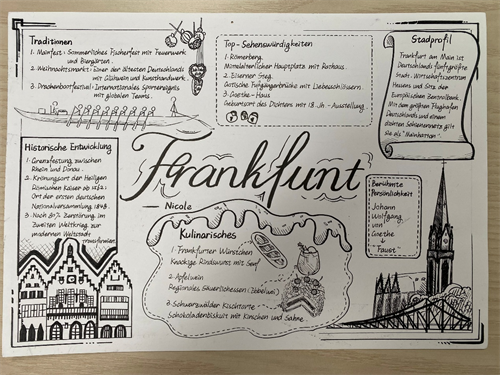 Traditionen
1. Mainfest: Sommerliches Fischerfest mit Feuerwerk
und Biergärten.
2. Weihnachtsmarkt: Einer der ältesten Deutschlands
mit Glühwein und Kunsthandwerk.
3. Drachenbootfestival: Internationales Sportereignis
mit globalen Teams.
Top-Sehenswürdigkeiten
1. Römerberg.
Mittelalterlicher Hauptplatz mit Rathaus.
2. Eiserner Steg.
Gotische Fußgängerbrücke mit Liebesschlössern.
3. Goethe-Haus
Geburtsort des Dichters mit 18. Jh.-Ausstellung.
Stadprofil
Frankfurt am Main ist
Deutschlands fünftgrößte
Stadt, Wirtschaftszentrum
Hessens und Sitz der
Europäischen Zentralbank.
Mit dem größten Flughafen
Deutschlands und einem
dichten Schienennetz gilt
sie als "Mainhatten".
Historische Entwicklung
1. Grenzfestung zwischen
Rhein und Donau.
2. Krönungsort der Heiligen
Römischen Kaiser ab
Ort der ersten deutschen
Nationalversammlung 1848.
3. Nach 80% Zerstörung im
Zweiten Weltkrieg zur
modernen Weltstadt
transformiert.
Frankfunt
Nicole
Kulinarisches
1. Frankfurter Würstchen
Knackige Rindswurst mit Senf
2. Apfelwein
Regionales Säuerlichessen
3. Schwarzwälder Kirschtorte
Schokoladenbiskuit mit Kirschen und Sahne
Berühmte
Persönlichkeit
Johann
Wolfgang
von
Goethe
"Faust"